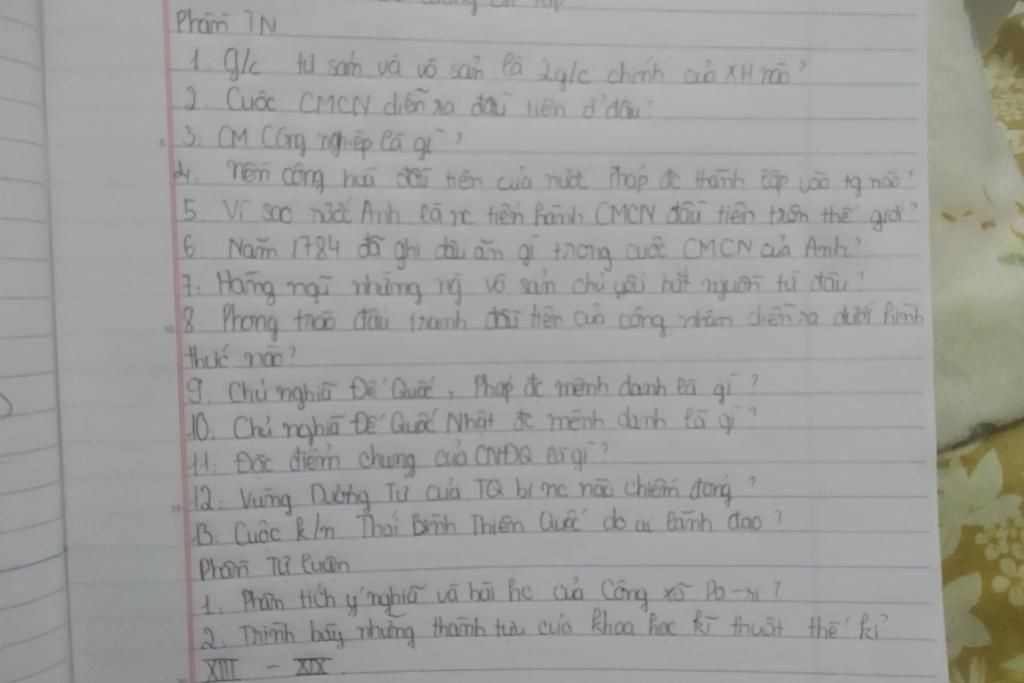 Phần TN
1. g/c tư sản và vô sản là 2g/c chính của XH nào?
2. Cuộc CMCN diễn ra đầu tiên ở đâu?
3. CM Công nghiệp là gì?
4. Nền cộng hoà đầu tiên của nước Pháp đc thành lập vào tg nào?
5. Vì sao nước Anh là nc tiến hành CMCN đầu tiên trên thế giới?
6. Năm 1784 đã ghi dấu ấn gì trong cuộc CMCN của Anh?
7. Hàng ngũ những ng vô sản chủ yếu bắt nguồn từ đâu?
8. Phong trào đấu tranh đầu tiên của công nhân diễn ra dưới hình
thức nào?
9. Chủ nghĩa Đế Quốc, Pháp đc mệnh danh là gì?
10. Chủ nghĩa Đế Quốc Nhật đc mệnh danh là gì?
11. Đặc điểm chung của CNĐQ là gì?
12. Vùng Dương Tử của TQ bị nc nào chiếm đóng?
13. Cuộc k/n Thái Bình Thiên Quốc do ai lãnh đạo?
Phần Tự luận
1. Phân tích ý nghĩa và bài hc của Công xã Pa-ri?
2. Trình bày những thành tựu của khoa học kĩ thuật thế kỉ
XIII - XIX